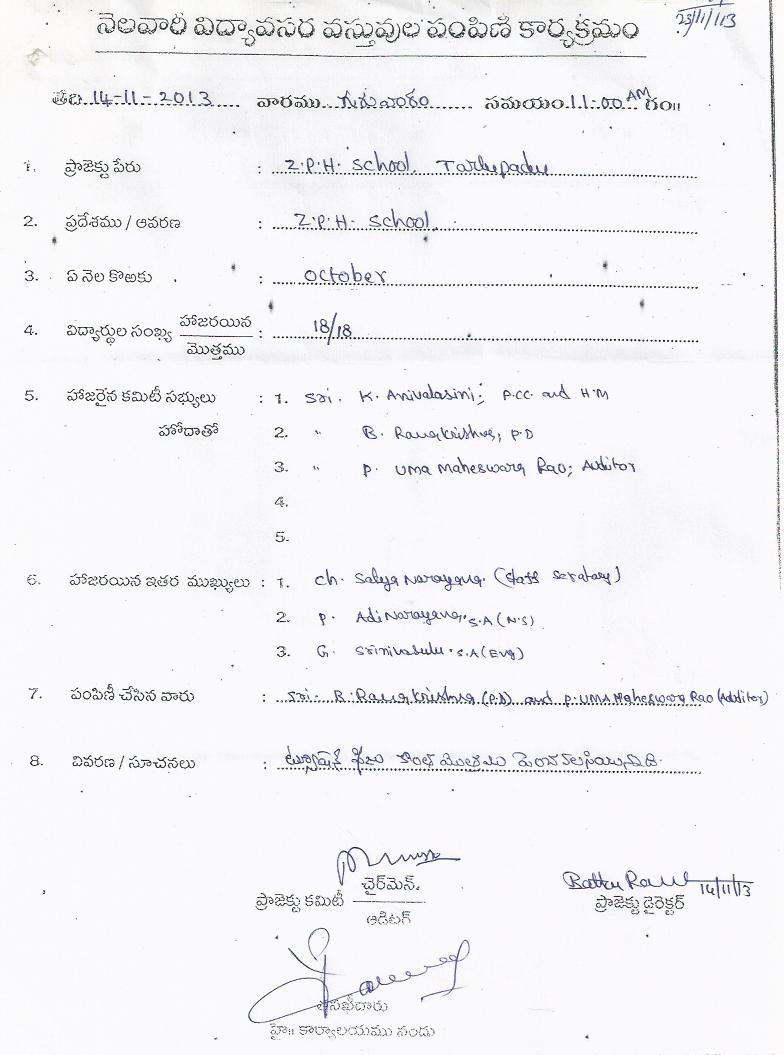 23/11/13
నెలవారీ విద్యావసర వస్తువుల పంపిణీ కార్యక్రమం
తేది 14-11-2013 వారము గురువారం సమయం 11.00 AM గం॥
1. ప్రాజెక్టు పేరు : Z.P.H. School, Tarlupadu
2. ప్రదేశము / ఆవరణ : Z.P.H. School.
3. ఏ నెల కొఱకు : October
4. విద్యార్థుల సంఖ్య హాజరయిన / మొత్తము : 18/18
5. హాజరైన కమిటీ సభ్యులు : 1. Sri. K. Anivalasini; P.CC. and H.M
హోదాతో 2. " B. Ramakrishna; P.D
3. " P. Uma Maheswara Rao; Auditor
4.
5.
6. హాజరయిన ఇతర ముఖ్యులు : 1. Ch. Satya Narayana. (Staff Secratary)
2. P. Adi Narayana, S.A (N.S)
3. G. Srinivasulu. S.A (Eng)
7. పంపిణీ చేసిన వారు : Sri. B. Ramakrishna (P.D) and P. UMA Maheswara Rao (Auditor)
8. వివరణ / సూచనలు : ట్యూషన్ ఫీజు మొత్తము పెంచవలసియున్నది.
చైర్‌మెన్.
ప్రాజెక్టు కమిటీ
ఆడిటగ్
14/11/13
ప్రాజెక్టు డైరెక్టర్
హై॥ కార్యాలయము నందు